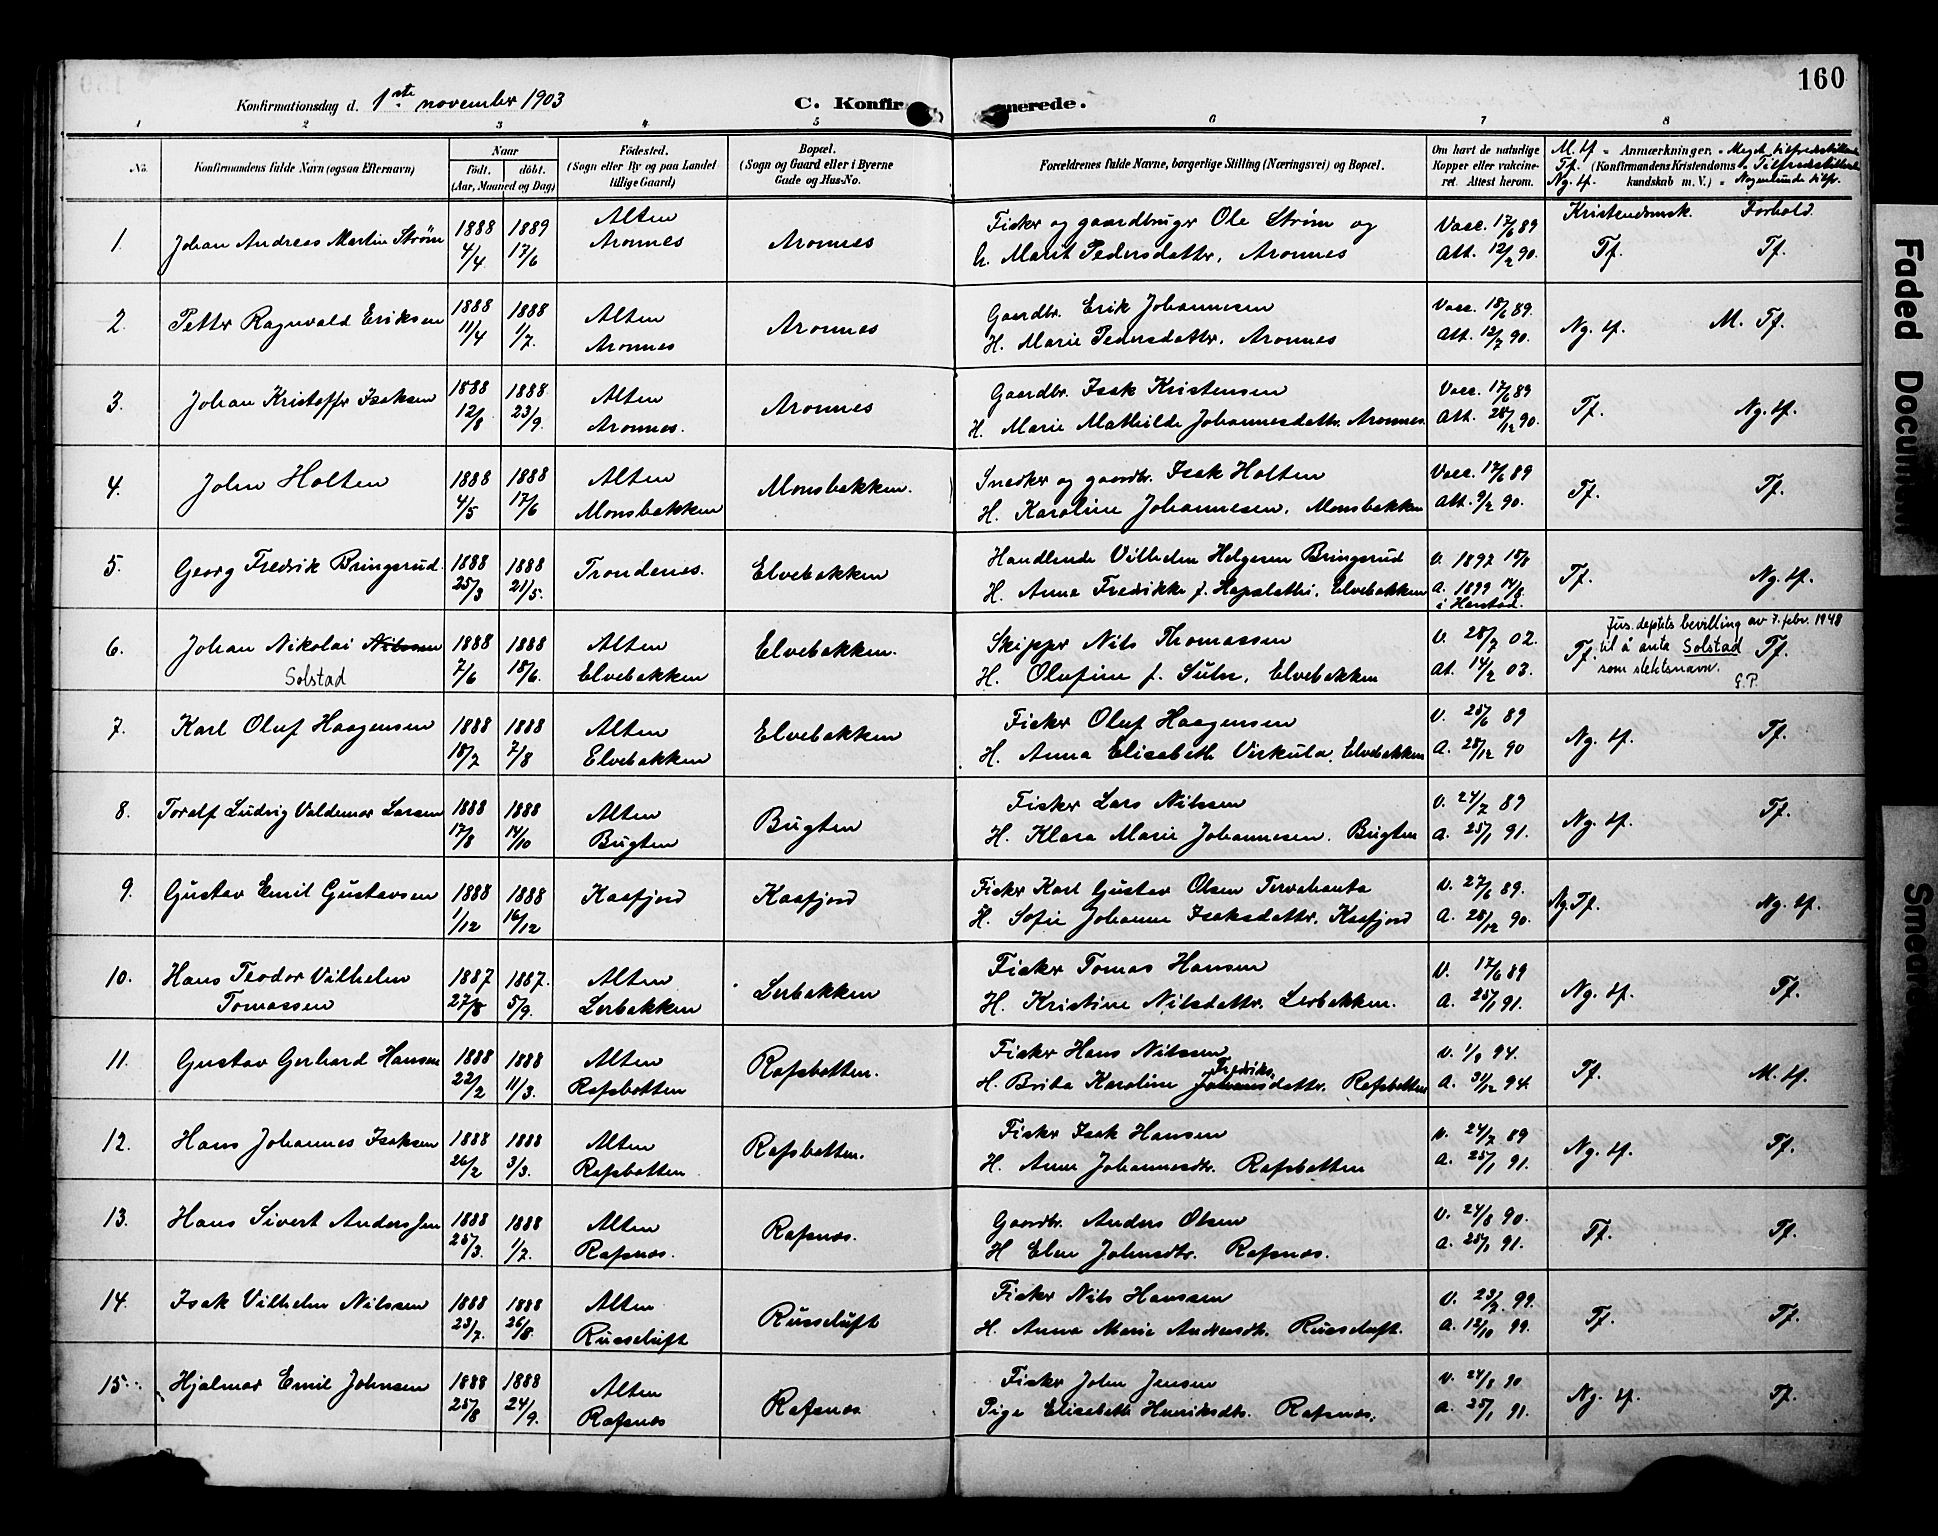 160
Konfirmationsdag d. 1ste november 1903 C. Konfirmerede.
1 2 3 4 5 6 7 8
No. Konfirmandens fulde Navn (ogsaa Efternavn) Naar födt. döbt. (Aar, Maaned og Dag) Födested. (Sogn eller By og paa Landet tillige Gaard) Bopæl. (Sogn og Gaard eller i Byerne Gade og Hus-No. Forældrenes fulde Navne, borgerlige Stilling (Næringsvei) og Bopæl. Om havt de naturlige Kopper eller vakcineret. Attest herom. Anmærkninger. (Konfirmandens Kristendomskundskab m. V.)
M. tf. = Meget tilfredsstillende
Tf. = Tilfredsstillende
Ng. tf. = Nogenlunde tilfr.
Kristendomsk. Forhold.
1. Johan Andreas Martin Strøm 1888 4/4 1889 17/6 Alten Aronnes Aronnes Fisker og gaardbruger Ole Strøm og
h. Marit Pedersdatter, Aronnes Vacc. 17/6 89 Att. 12/2 90. Tf. Tf.
2. Petter Ragnvald Eriksen 1888 11/4 1888 1/7. Alten Aronnes Aronnes Gaardbr. Erik Johannesen
H. Marie Pedersdatter, Aronnes Vacc. 18/6 89. Att. 12/2 90. Ng. tf. M. Tf.
3. Johan Kristoffer Isaksen 1888 12/8 1888 23/9. Alten Aronnes. Aronnes Gaardbr. Isak Kristensen
H. Marie Mathilde Johannesdatter. Aronnes Vacc. 17/6 89 Att. 28/12 90. Tf. Ng. tf.
4. John Holten 1888 4/5 1888 17/6 Alten Monsbakken Monsbakken. Snedker og gaardbr. Isak Holten
H. Karoline Johannesen, Monsbakken Vacc. 17/6 89 Att. 9/2 90. Tf. Tf.
5. Georg Fredrik Bringsrud. 1888 25/3 1888 21/5. Trondenes. Elvebakken Handlende Vilhelm Helgesen Bringsrud
H. Anna Fredrikke f. Elvebakken V. 1897 A. 1899 i Harstad. Tf. Ng. tf.
6. Johan Nikolai Nilssen 1888 7/6 1888 18/6. Alten Elvebakken Elvebakken. Skipper Nils Thomassen
Solstad H. Olufine f. Suhr, Elvebakken V. 28/7 02. At. 14/2 03. Tf. Tf.
Jus. deptets bevilling av 7. febr. 1948
til å anta Solstad
som slektsnavn.
G.P.
7. Karl Oluf Haagensen 1888 18/7 1888 7/8 Alten Elvebakken Elvebakken Fisker Oluf Haagensen
H. Anna Elisabeth Virkula, Elvebakken V. 25/6 89 A. 28/12 90 Ng. tf. Tf.
8. Toralf Ludvig Valdemar Larsen 1888 17/8 1888 14/10 Alten Bugten Bugten Fisker Lars Nilssen
H. Klara Marie Johannesen. Bugten V. 24/7 89 A. 25/1 91. Ng. tf. Tf.
9. Gustav Emil Gustavsen 1888 1/12 1888 16/12 Kaafjord Kaafjord Fisker Karl Gustav Olsen Tervahauta
H. Sofie Johanne Isaksdatter. Kaafjord V. 27/6 89. A. 28/12 90. Ng. Tf. Ng. tf.
10. Hans Teodor Vilhelm Tomassen 1887 27/8 1887. 5/9. Alten Lerbakken Lerbakken Fisker Tomas Hansen
H. Kristine Nilsdatter. Lerbakken. V. 17/6 89 A. 25/1 91. Ng. tf. Tf.
11. Gustav Gerhard Hansen 1888 22/2 1888 11/3. Alten Rafsbotten Rafsbotten. Fisker Hans Nilssen
Fredriks.
H. Brita Karoline Johannsdatter. Rafsbotten V. 1/9 94. A. 31/12 94. Tf. M. tf.
12. Hans Johannes Isaksen 1888 26/2 1888 3/3. Alten Rafsbotten Rafsbotten. Fisker Isak Hansen
H. Anne Johannesdtr. Rafsbotten V. 24/7 89 A. 25/1 91. Ng. tf. Tf.
13. Hans Sivert Anderssen 1888 25/3. 1888 1/7. Alten Rafsnæs. Rafsnæs. Gaardbr. Anders Olsen
H Elen Johnsdtr. Rafsnæs. V. 24/8 90. A. 25/1 91. Tf. Tf.
14. Isak Vilhelm Nilssen 1888 23/7. 1888 26/8. Alten Russeluft Russeluft Fisker Nils Hanssen
H. Anna Marie Andersdtr. Russeluft. V. 23/9. 99. A. 12/10 99. Tf. Tf.
15. Hjalmar Emil Johnsen 1888 25/8 1888 24/9. Alten Rafsnæs Rafsnæs Fisker John Jensen
Pige Elisabeth Henriksdtr. Rafsnæs. V. 24/8 90 A. 25/1 91. Ng. tf. Tf.
Faded Document
Smeared